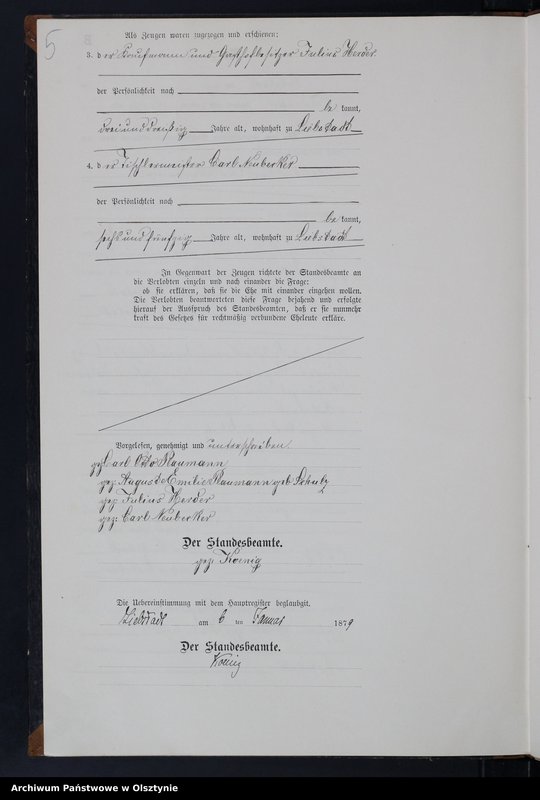 5
Als Zeugen waren zugezogen und erschienen:
3. der Kaufmann und Gasthofbesitzer Julius Herder
der Persönlichkeit nach
be kannt,
dreiunddreißig Jahre alt, wohnhaft zu Liebstadt
4. der Tischlermeister Carl Neuberker
der Persönlichkeit nach
be kannt,
sechsundfünfzig Jahre alt, wohnhaft zu Liebstadt
In Gegenwart der Zeugen richtete der Standesbeamte an
die Verlobten einzeln und nach einander die Frage:
ob sie erklären, daß sie die Ehe mit einander eingehen wollen.
Die Verlobten beantworteten diese Frage bejahend und erfolgte
hierauf der Ausspruch des Standesbeamten, daß er sie nunmehr
kraft des Gesetzes für rechtmäßig verbundene Eheleute erkläre.
Vorgelesen, genehmigt und unterschrieben.
gez. Carl Otto Naumann
gez. Auguste Emilie Naumann geb. Schulz
gez. Julius Herder
gez. Carl Neuberker
Der Standesbeamte.
gez. Koenig
Die Uebereinstimmung mit dem Hauptregister beglaubigt.
Liebstadt am 6 ten Januar 1879
Der Standesbeamte.
Koenig
Archiwum Państwowe w Olsztynie